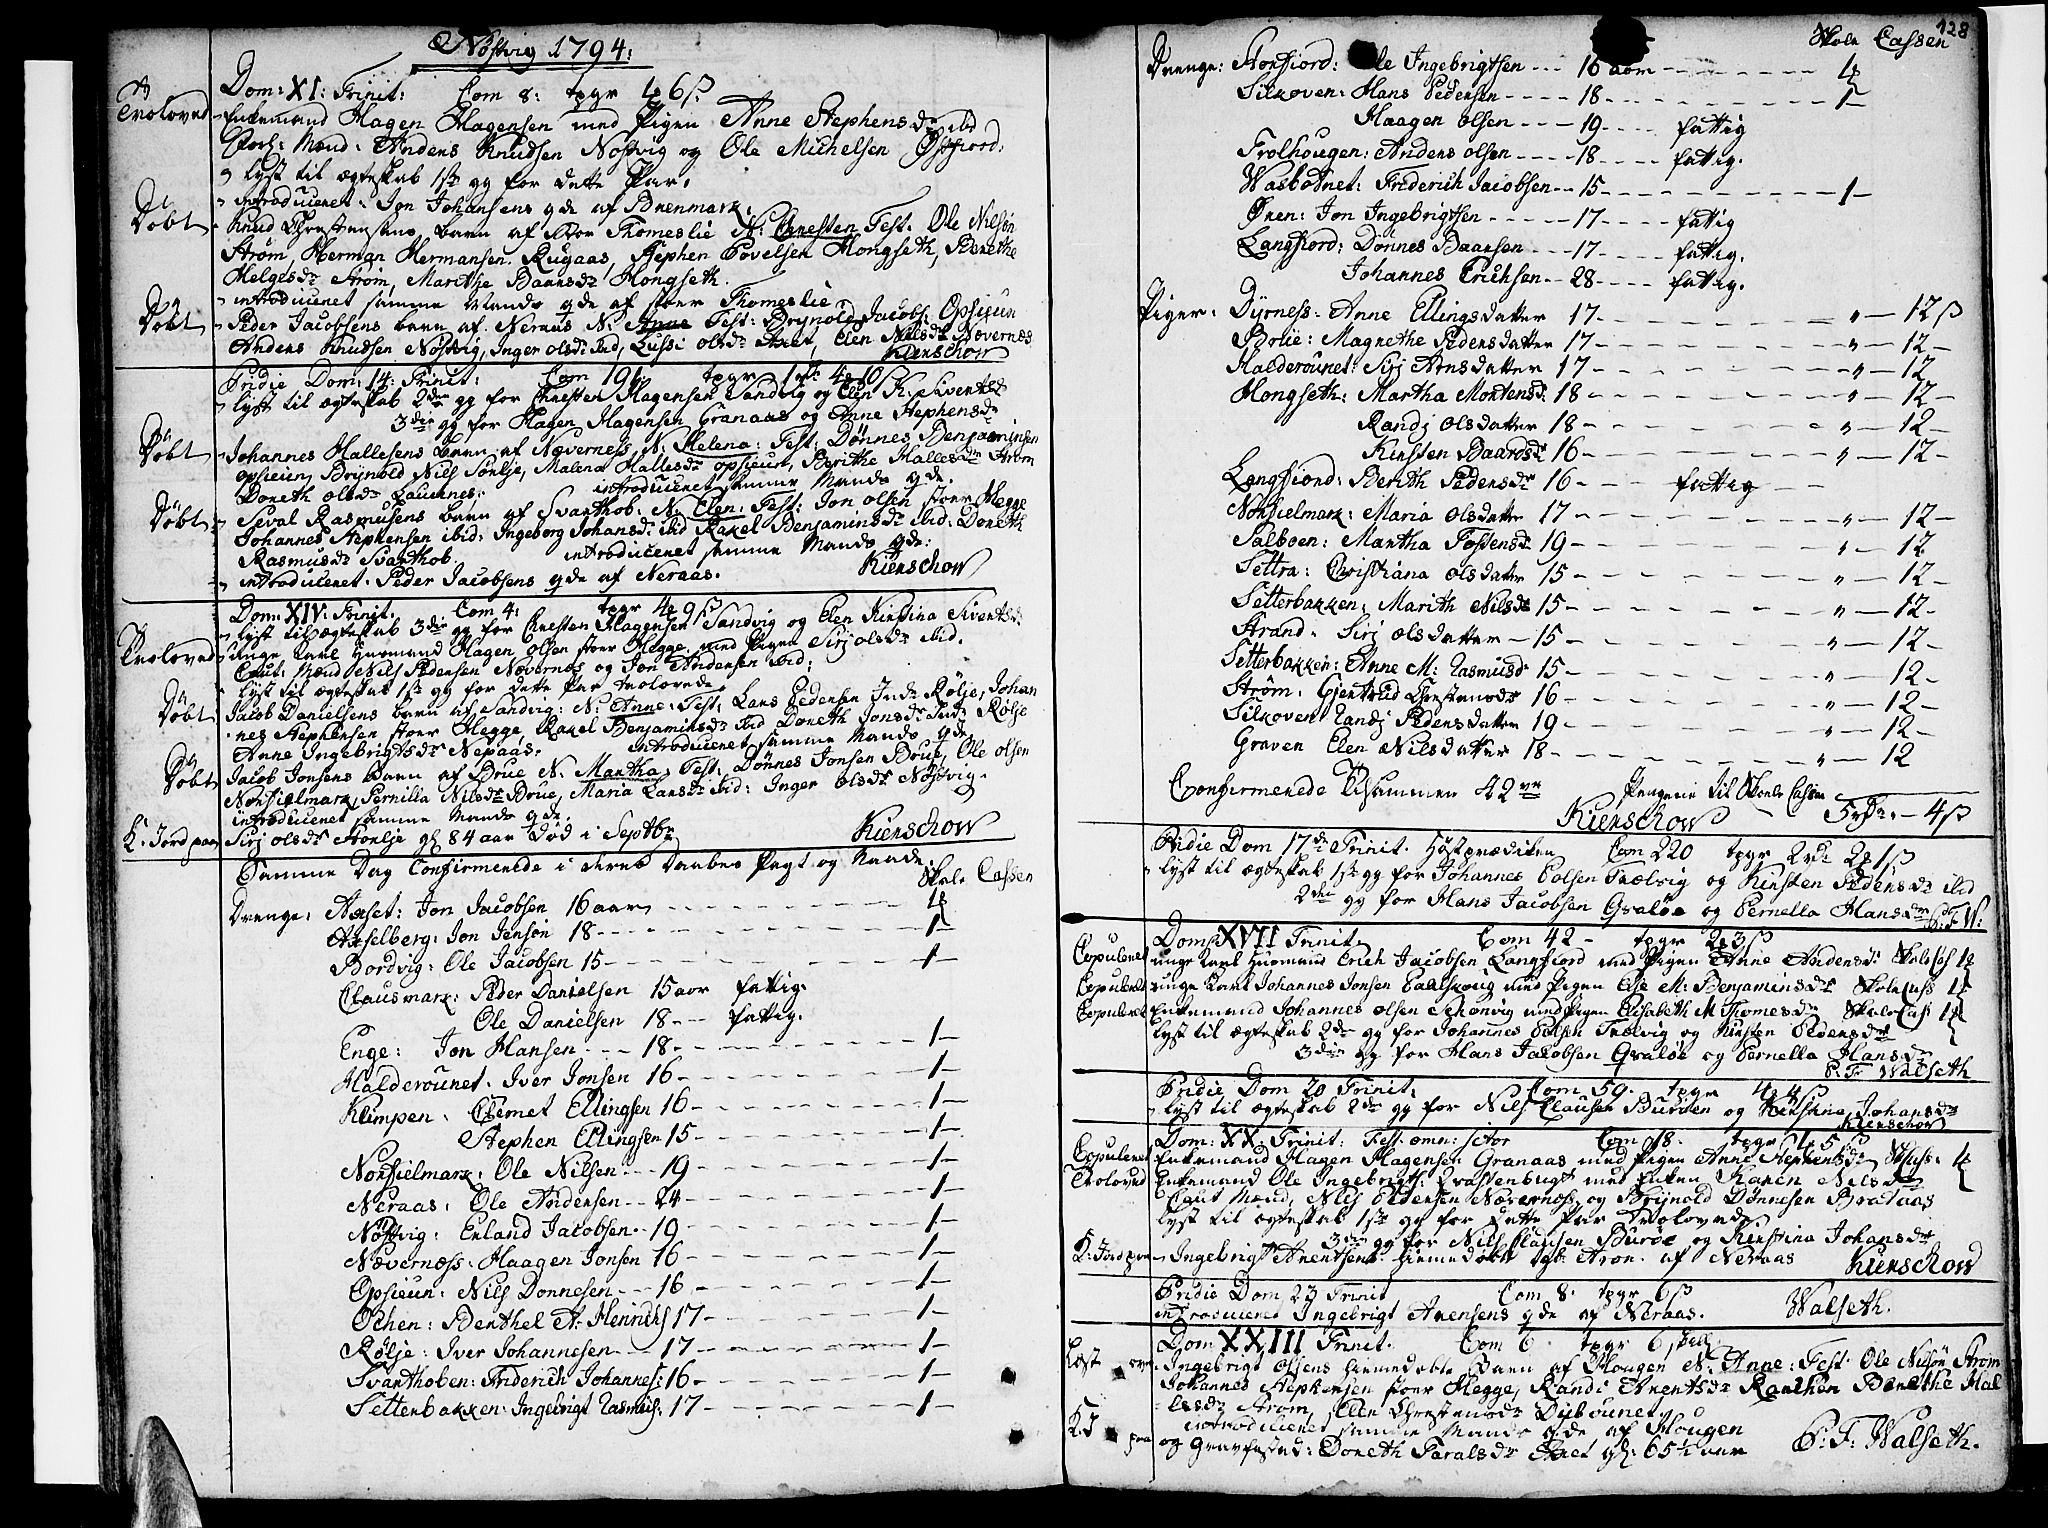 Nøstvig 1794:
Dom: XI: Trinit: Com 8: tpgr 4 6 ß
Trolovet
Enkemand Hagen Hagensen med Pigen Anne Stephens dr ibd
Forl: Mænd: Anders Knudsen Nøstvig og Ole Michelsen
lyst til ægteskab 1ste gg for dette Par.
introduceret: Jon Johansens qde af Brenmark.
Døbt
Knud Christensens barn af Stor Thomeslie N: Christen Test. Ole Nilsøn
Strøm, Herman Hermansen Rugaas, Stephen Povelsen Hongseth, Berethe
Helgesdr Strøm, Marithe Baarsdr Hongseth.
introduceret samme Mands qde af stoer Thomeslie
Døbt
Peder Jacobsens barn af Neraas N: Anne Test: Brynold Jacobs: Opsieun
Anders Knudsen Nøstvig, Inger olsdr ibid, Lussi olsdr, Elen Nilsdr Nævernes
Kierschow
Pridie Dom: 14: Trinit: Com 191 tpgr
lyst til ægteskab 2den gg for Christen Hagensen Sandvig og Elen K: Siverts
3die gg for Hagen Hagensen Granaas og Anne Stephensdr
Døbt
Johannes Hallesens barn af Næverness N: Helena: Test: Dønnes Benjaminsen
opsieun, Brynold Nils Sørlje, Malena Hallesdr opsieun, Berithe Hallesdr Strøm
Doreth olsdr Laurnes. introduceret samme Mands qde.
Døbt
Seval Rasmusens barn af Svarthob: N: Elen: Test: Jon olsen stoer Hegge
Johannes Stephensen ibid: Ingeborg Johansdr ibid Rakel Benjaminsdr ibid: Doreth
Rasmusdr Svarthob. introduceret samme Mands qde:
introduceret. Peder Jacobsens qde af Neraas. Kierschow
Dom: XIV: Trinit. Com 4: tpgr 4 9 ß
lyst til ægteskab 3die gg for Christen Hagensen Sandvig og Elen Kirstina Siverts dr
Trolovet
unge Karl Huusmand Hagen olsen stoer Hegge med Pigen Siri olsdr ibid.
Caut: Mænd Nils Pedersen Nævernes og Jon Andersen ibid:
lyst til ægteskab 1ste gg for dette Par trolovede
Døbt
Jacob Danielsens barn af Sandvig: N: Anne: Test: Lars Pedersen Indr Rølje, Johan
nes Stephensen stoer Hegge, Rakel Benjaminsdr ibid Doreth Jonsdr Indr Rølje
Anne Ingebrigtsdr Nepaas. introduceret samme Mands qde
Døbt
Jacob Jonsens Barn af Brue N. Martha: Test: Dønnes Jonsen Brue, Ole olsen
Norsielmark, Pernilla Nilsdr Brue, Maria Larsdr ibid: Inger olsdr Nøstvig.
introduceret samme Mands qde.
K: Jord paa
Siri olsdr Storlje gl 84 aar død i Septbr Kierschow
Samme Dag Confirmerede i deres Daabes Pagt og Naade
Skole Cassen
Drenge: Axset: Jon Jacobsen 16 aar
Axselberg: Jon Jensøn 18 - 1 -
Bordvig: Ole Jacobsen 15 - 1 -
Clausmark: Peder Danielsen 15 aar fattig.
Ole Danielsen 18 fattig.
Enge: Jon Hansen 18 - 1 -
Halderounet: Iver Jonsen 16 - 1 -
Klimpen: Clemet Ellingsen 16 - 1 -
Stephen Ellingsen 15 - 1 -
Norsielmark: Ole Nilsen 19 - 1 -
Neraas: Ole Andersen 24 - 1 -
Nøstvig: Erland Jacobsen 19 - 1 -
Nævernæss: Haagen Jonsen 16 - 1 -
Opsieun: Nils Donnesen 16 - 1 -
Ochen: Benthel A: Henrichs 17 - 1 -
Rølje: Iver Johannesen 17 - 1 -
Svarthoben: Friderich Johannes: 16 - 1 -
Setterbakken: Ingebrigt Rasmus: 17 - 1 -
128
Skole Cassen
Drenge: Storfiord: Ole Ingebrigtsen 16 aar
Silkoven: Hans Pedersen 18 - 1 -
Haagen olsen 19 fattig
Trolhougen: Anders olsen 18 fattig.
Wasbotnet: Friderich Jacobsen 15 - 1 -
Øren: Jon Ingebrigtsen 17 fattig
Langfiord: Donnes Baarsen 17 fattig.
Johannes Erichsen 28 fattig.
Piger: Dyrness: Anne Ellingsdatter 17 - " - 12 ß
Brlie: Magrethe Pedersdatter 17 - " - 12 -
Halderounet: Siri Arnsdatter 17 - " - 12
Hongseth: Martha Mortensd: 18 - " - 12 -
Randi olsdatter 18 - " - 12 -
Kirsten Baardsdr 16 - " - 12 -
Langfiord: Berith Pedersdr 16 fattig
Norsielmark: Maria olsdatter 17 - " - 12 -
Salboen: Martha Tostensdr 19 - " - 12
Settra: Christiana olsdatter 15 - " - 12 -
Setterbakken: Marith Nilsdr 15 - " - 12 -
Strand: Siri olsdatter 15 - " - 12 -
Setterbakken: Anne M: Rasmusdr 15 - " - 12 -
Strøm: Gjertrud Christensdr 16 - " - 12 -
Silkoven Randi Pedersdatter 19 - " - 12 -
Graven Elen Nilsdatter 18 - " - 12
Confirmerede Tilsammen 42 Pengene til Skole Cassen
Kierschow 5 rdr - 4 ß
Pridie Dom 17de Trinit. Høstprædiken Com 220 tpgr 2 rdr 2 1 ß
lyst til ægteskab 1ste gg for Johannes Polsen Trælvig og Kirsten Pedersdr ibid
2den gg for Hans Jacobsen Graløe og Pernella Hansdr P: F: W:
Dom: XVII Trinit. Com 42 - tpgr 2 3 ß
Copuleret unge Karl Huusmand Erich Jacobsen Langfiord med Pigen Anne Andersdr Skole Cass 1
Copuleret unge Karl Johannes Jonsen med Pigen Else M: Benjaminsdr Skole Cass 1
Copuleret Enkemand Johannes olsen Schonvig med Pigen Elisabeth M Thomesdr Skole Cass 1
lyst til ægteskab 2den gg for Johannes Polsen Trælvig og Kirsten Pedersdr
3die gg for Hans Jacobsen Graløe og Pernella Hansdr
P: F: Walseth
Pridie Dom 20 Trinit. Com 59. tpgr 4 4 ß
lyst til ægteskab 2den gg for Nils Clausen Burøen og Kirstina Johansdr
Kierschow
Dom: XX Trinit: Fest: omn: sctor Com 18. tpgr 4 5 ß
Copuleret Enkemand Hagen Hagensen Granaas med Pigen Anne Stephensdr
Trolovet Enkemand Ole Ingebrigts: med Enken Karen Nilsdr
Caut Mænd, Nils Pedersen Næverness og Brynold Dønnesen Brataas
lyst til ægteskab 1ste gg for dette Par Trolovede
3die gg for Nils Clausen Burøe og Kirstina Johansdr
K: Jord paa - Ingebrigt Arentsens hiemedøbt dgb: Aron. af Neraas Kierschow
Pridie Dom 23 Trinit Com 8. tpgr 6 ß
introduceret Ingebrigt Arensens qde af Neraas. Walseth.
Dom XXIII Trinit. Com 6 tpgr 6 skell
Ingebrigt olsens hiemedøbte Barn af Hougen N: Anne: Test. Ole Nilsøn Strøm
Johannes Stephensen stoer Hegge, Randi Arentsdr Berethe Hal
lesdr Strøm, Elen Christensdr Dybounet.
introduceret samme Mands qde af Hougen
og Gravfæstad: Doreth Taralsdr Axset gl: 65½ aar P: F: Walseth.